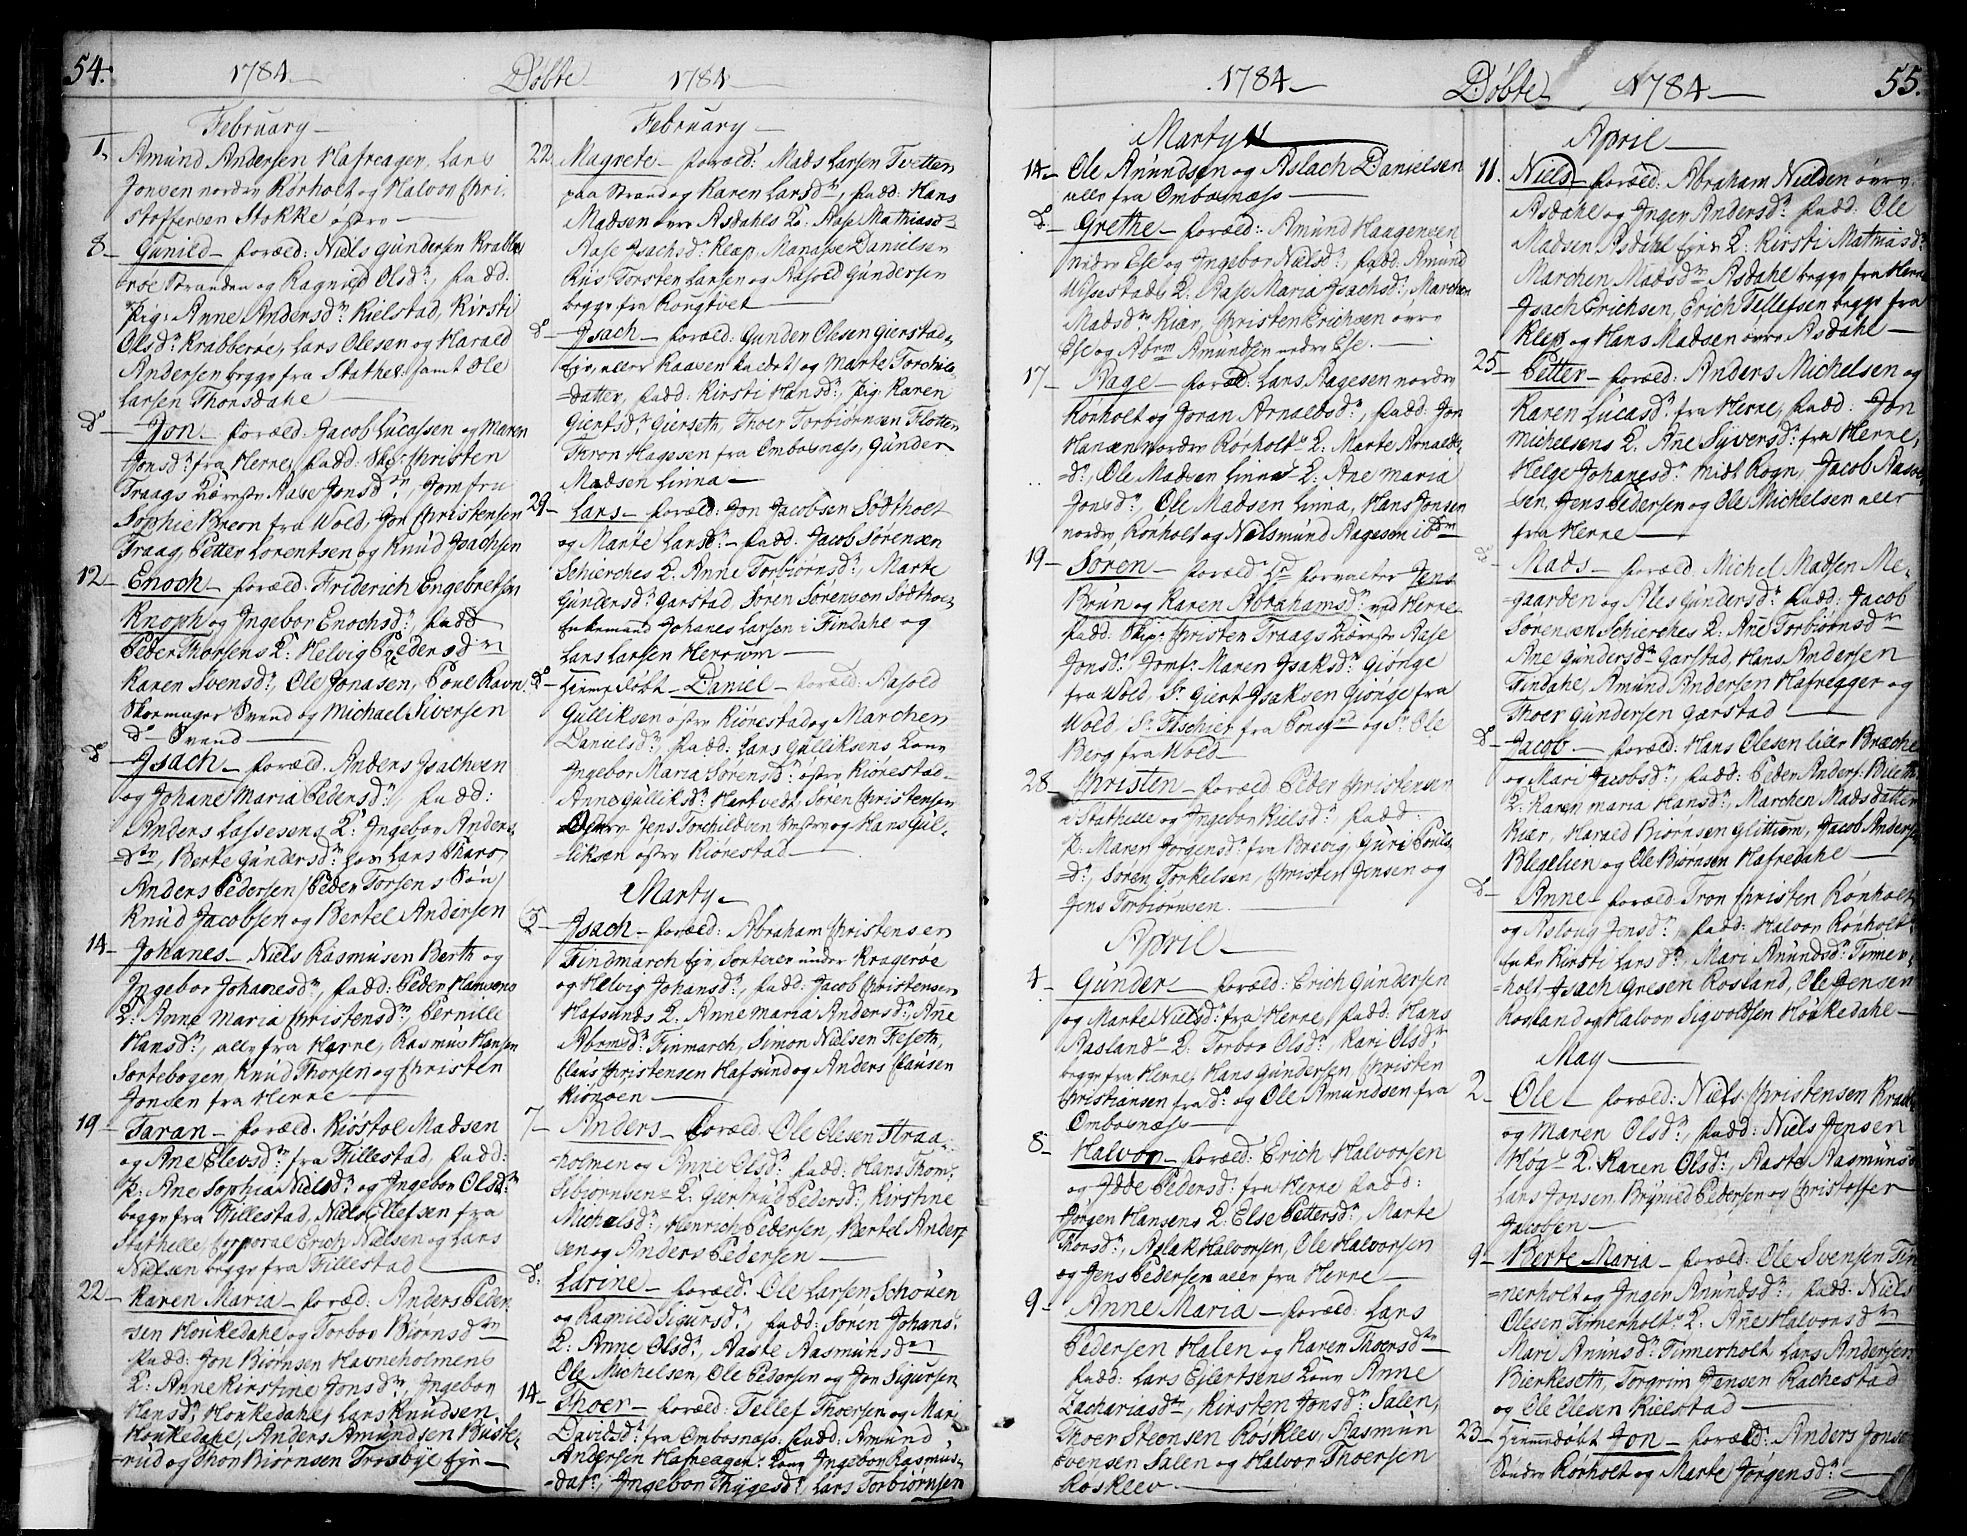 54.
1784.
Döbte
1784.
February
1. Amund Andersen Hafreager, Lars
Jonsen nordre Rörholt og Halvor Chri-
stoffersen Stokke östre
8 Gunild foræld: Niels Gundersen Krabbe
röe Stranden og Ragnild Olsdr, fadd:
Pig: Anne Andersdr Kielstad, Kirsti
Olsdr Krabberöe, Lars Olesen og Harald
Andersen begge fra Stathel: samt Ole
Larsen Thorsdahl
do Jon foræld. Jacob Lucassen og Maren
Jonsdr fra Herre, fadd: Skr Christen
Traags Kiereste Aase Jonsdr, Jomfru
Sophie Breon fra Wold, Jon Christensen
Traag, Petter Lorentsen og Knud Jsachsen
12 Enoch foræld: Friderich Engebretsen
Knoph og Ingebor Enochsdr, fadd
Peder Thorsens Q: Helvig Pedersdr
Karen Svensdr, Ole Jonasen, Poul Ravn
Skormager Svend og Michael Siversen
do Svend
do Jsach foræld. Anders Jsachsen
og Johane Maria Pedersdr, fadd:
Anders Lassesens Q: Ingebor Anders
=dtr, Berte Gundersdr hos Lars Thars,
Anders Pedersen /Peder Torsens Sön/
Knud Jacobsen og Bertel Andersen
14 Johanes Niels Rasmusen Berth og
Ingebor Johanesdr, fadd: Peder Hansens
Q: Anne Maria Christensdr, Pernille
Hansdr, alle fra Herre, Rasmus Hansen
Sortebogen, Knud Thorsen og Christen
Jonsen fra Herre
19 Taran foræld. Kiöstol Madsen
og Ane Elevsdr fra Fillestad, fadd:
P: Ane Sophia Nielsdr og Ingebor Olsdr
begge fra Fillestad, Niels Ellefsen fra
Stathelle, Corporal Erich Nielsen og Lars
Nielsen begge fra Fillestad
22 Karen Maria foræld: Anders Peder-
sen Houkedahl og Torbor Biörnsdtr
fadd: Jon Biörnsen Havneholmens
Q: Anne Kirstine Jonsdr, Ingebor
Hansdr Houkedahl, Lars Knudsen
Houkedahl, Anders Amundsen Buste-
rud og Thor Biörnsen Trosbye eje
February
22 Magrete foræld: Mads Larsen Tvetten
paa Strand og Karen Larsdr, fadd: Hans
Madsen övre Asdahls Q: Aase Mathiasdr
Aase Jsachsdr Klep, Manasse Danielsen
Riis Torsten Larsen og Aasold Gundersen
begge fra Rougtvet
do Jsach foræld: Gunder Olesen Gierstad
eje, eller Raaven kaldet og Marte Torchils-
=datter, fadd: Kirsti Hansdr, Pig: Karen
Giertsdr Gierseth, Thoer Torbiörnsen Flotten
Thron Hagesen fra Ombosnæss, Gunder
Madsen Linna
29 Lars foræld: Jon Jacobsen Södtholt
og Marte Larsdr fadd: Jacob Sörensen
Schierches Q: Anne Torbiörnsdr, Marte
Gundersdr Garstad Sören Sörensen Södthol-
Enkemand Johanes Larsen i Findahl og
Lars Larsen Herrum
do Hjemedöbt Daniel foræld: Aasold
Gulliksen östre Kiörestad og Marchen
Danielsdr, fadd: Lars Gulliksens Kone
Ingebor Maria Sörensdr östre Kiörestad
Anne Gulliksdr Hartvedt, Sören Christensen
Jens Torchildsen Vestre og Hans Gul-
=liksen östre Kiörestad
Marty
5 Jsach foræld: Abraham Christensen
Findmarch eje, Sorterer under Kragerøe
og Helvig Johansdr, fadd: Jacob Christensen
Hafsunds Q: Anne Maria Andersdr, Ane
Abrmsdr Finmarch, Simon Nielsen Feseth,
Claus Christensen Hafsund og Anders Clausen
Kiönoen
7 Anders foræld. Ole Olesen Straa-
=holmen og Anne Olsdr fadd: Hans Thom:
Sibiörnsens Q: Giertrud Pedersdr, Kirstine
Michelsdr, Henrich Pedersen, Bertel Anders
sen og Anders Pedersen
do Larine foræld: Ole Larsen Schouen
og Ragnild Sigursdr, fadd: Sören Johans:
Q: Anne Olsdr, Aaste Aasmundsdtr
Ole Michelsen, Ole Pedersen og Jon Sigursen
14 Thoer foræld: Tellef Thoersen og Mari
Davidsdr fra Ombosnæss. fadd: Amund
Andersen Hafreager: Kone Ingebor Rasmus-
=datr, Ingebor Thygesdr, Lars Torbiörnsen
1784
Döbte
1784
55.
Marty
14 Ole Anundsen og Aslach Danielsen
alle fra Ombosnæss
do Grethe foræld: Amund Haagensen
nedre Ese og Ingebor Nielsdr, fadd: Amund
Ulsestads Q: Aase Maria Jsachsdr, Marchen
Madsdr Kiær, Christen Erichsen övre
Ese og Abrm Amundsen nedre Ese.
17 Aage foræld: Lars Aagesen nordre
Rörholt og Joran Arnaldsdr, fadd: Jon
Hansen Nordre Rörholts Q: Marte Arnalds
=dr, Ole Madsen Linnes Q: Ane Maria
Jonsdr, Ole Madsen Linna, Hans Jonsen
nordre Rörholt og Nielsmund Aagesen ibdm
19 Sören foræld Sr forvalter Jens
Brun og Karen Abrahamsdr ved Herre
fadd: Skipr Christen Traags Kiæreste Aase
Jonsdr Jomf: Maren Jsaksdr Giönge
fra Wold, Sr Giert Jsaksen Giönge fra
Wold, Sr Faschier fra Porsgrd og Sr Ole
Berg fra Wold
28 Christen foræld Peder Christensen
i Stathelle og Ingebor Kielsdr, fadd:
P. Maren Jörgensdr fra Brevig, Guri Pouls
=dr, Sören Torkelsen, Christen Jensen og
Jens Torbiörnsen
April
4 Gunder foræld: Erich Gundersen
og Marte Nielsdr fra Herre, fadd: Hans
Aaslands Q: Torbor Olsdr, Kari Olsdr
begge fra Herre, Hans Gundersen, Christen
Christiansen fra do og Ole Amundsen fra
Ombosnæss
8 Halvor foræld: Erich Halvorsen
og Idde Pedersdr fra Herre fadd:
Jörgen Hansens Q: Else Pettersdr, Marte
Thorsdr, Aslak Halvorsen, Ole Halvorsen
og Jens Pedersen alle fra Herre
9 Anne Maria foræld: Lars
Pedersen Halen og Karen Thoersdtr
fadd: Lars Ejlertsens Kone Anne
Zachariasdtr, Kirsten Jonsdr Salen,
Thoer Steensen Röskleev, Aasmun
Svensen Salen og Halvor Thoersen
Röskleev
April
11. Niels foræld: Abraham Nielsen övre
Asdahl og Inger Andersdr fadd: Ole
Madsen Asdahl ejes Q: Kirsti Mathiasdr
Marchen Madsdtr Asdahl begge fra Herre
Jsach Erichsen, Erich Tellefsen begge fra
Klep og Hans Madsen övre Asdahl
25 Petter foræld: Anders Michelsen og
Karen Lucasdr fra Herre, fadd: Jon
Michelsens Q: Ane Syversdr fra Herre,
Helge Johanesdr Midt Rogn, Jacob Aasol-
sen, Jens Pedersen og Ole Michelsen alle
fra Herre
do Mads foræld. Michel Madsen Me-
=gaarden og Ales Gundersdr fadd: Jacob
Sörensen Schierches Q: Ane Torbiörnsdtr
Ane Gundersdtr Garstad, Hans Andersen
Findahl, Amund Andersen Hafregger og
Thoer Gundersen Garstad
do Jacob foræld: Hans Olesen lille Bræche
og Mari Jacobsdr, fadd: Peder Anders: Blieth:
Q: Karen Maria Hansdr, Marchen Madsdatter
Kiær, Harald Biörnsen Glittum, Jacob Anders
Blegelien og Ole Biörnsen Hafredahl
do Anne foræld: Tron Christen Rönholt
og Asloug Jensdr, fadd: Halvor Rönholt
Enke Kirsti Larsdr, Mari Anundsdr Timer-
=holt, Jsach Gresen Rosland, Ole Jensen
Rosland og Halvor Sigvoldsen Houkedahl
May
2 Ole foræld: Niels Christensen Krabbe
og Maren Olsdr, fadd: Niels Jensen
Høg Q: Karen Olsdr, Aaste Aasmunsd
Lars Jonsen, Bryniel Pedersen og Christoffer
Jacobsen
9 Berte Maria foræld: Ole Svensen Tim
=nerholt og Inger Anundsdr fadd: Niels
Olesen Timerholts Q: Ane Halvorsdtr
Mari Anunsdr Timmerholt, Lars Andersen
Bierkeseth, Torgrim Jensen Rachestad
og Ole Olesen Kielstad
23 Hiemedöbt Jon foræld: Anders Jonsen
Söndre Rörholt og Marte Jörgensdr